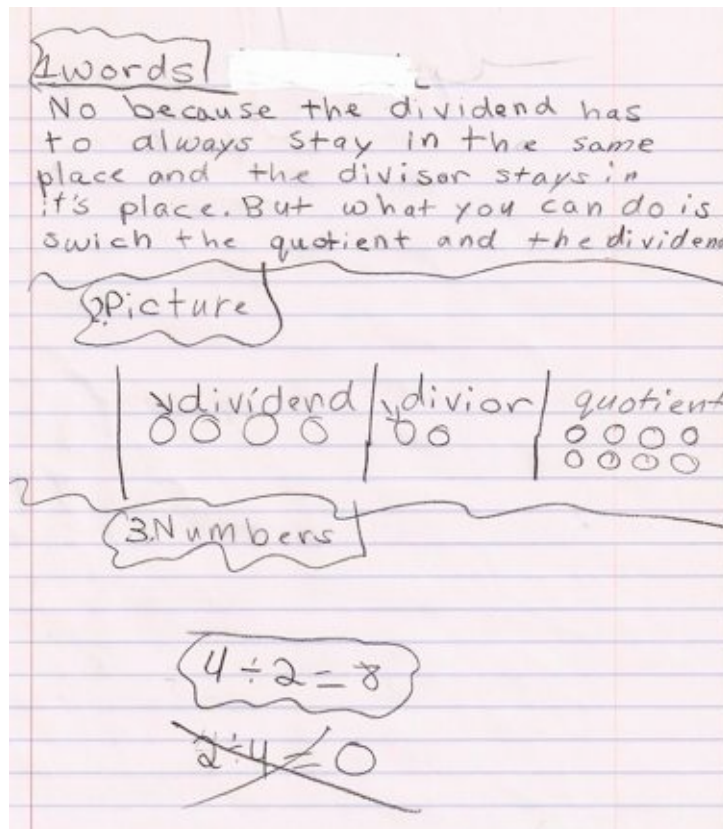 1 words
No because the dividend has
to always stay in the same
place and the divisor stays in
it's place. But what you can do is
swich the quotient and the dividend
2.Picture
dividend divior quotient
3.Numbers
4÷2=8
2÷4=0